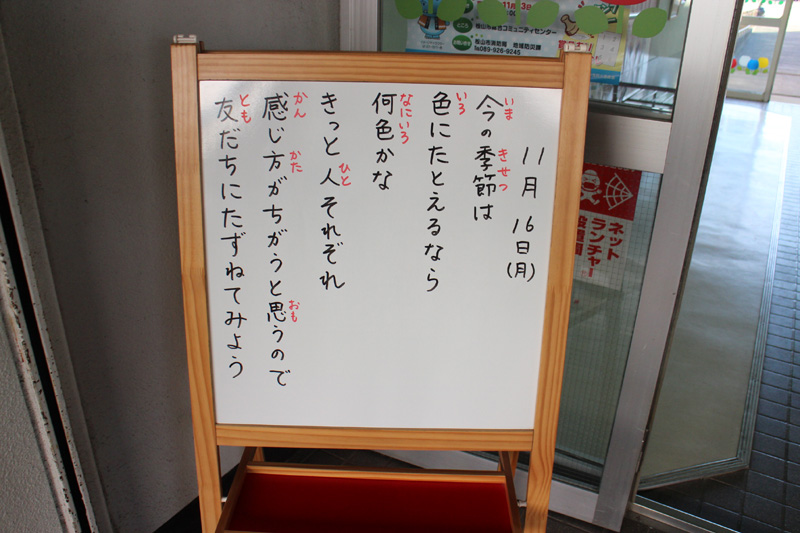 11月16日(月)
今の季節は
いま きせつ
色にたとえるなら
いろ
何色かな
なにいろ
きっと人それぞれ
ひと
感じ方がちがうと思うので
かん かた おも
友だちにたずねてみよう
とも
ネット
ランチャー
設置園